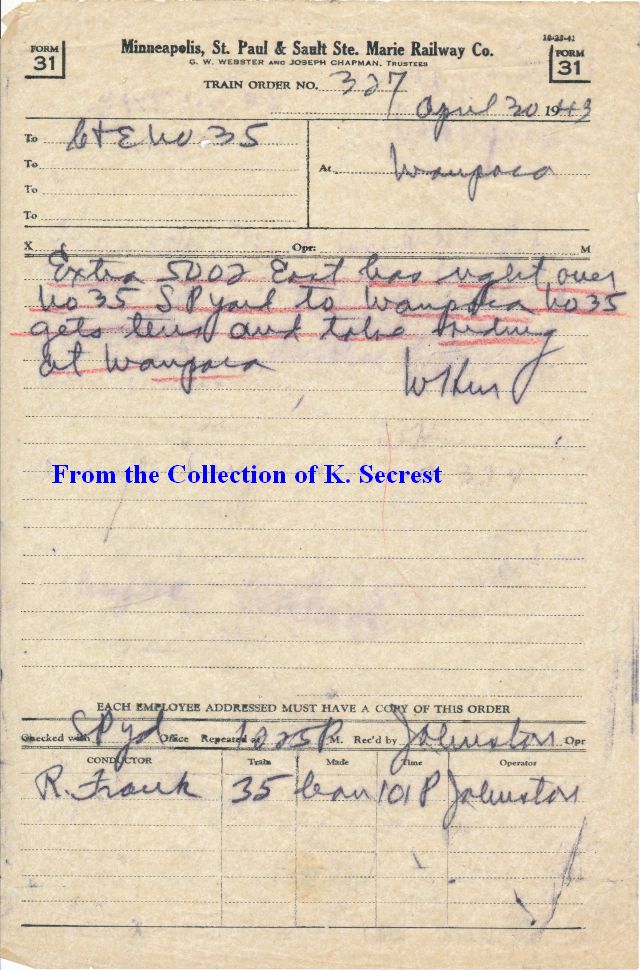 FORM 31
Minneapolis, St. Paul & Sault Ste. Marie Railway Co.
10-23-41
FORM 31
G. W. WEBSTER AND JOSEPH CHAPMAN, TRUSTEES
TRAIN ORDER NO. 327
April 30 1943
To C+E No 35
To
To
To
At Waupaca
X Opr: M
Extra 5002 East has right over
No 35 S P yard to Waupaca No 35
gets this and take siding
at Waupaca
From the Collection of K. Secrest
EACH EMPLOYEE ADDRESSED MUST HAVE A COPY OF THIS ORDER
Checked with S P yd Office Repeated at 1225P M. Rec'd by Johnston Opr
CONDUCTOR Train Made Time Operator
R. Frank 35 Com 101P Johnston